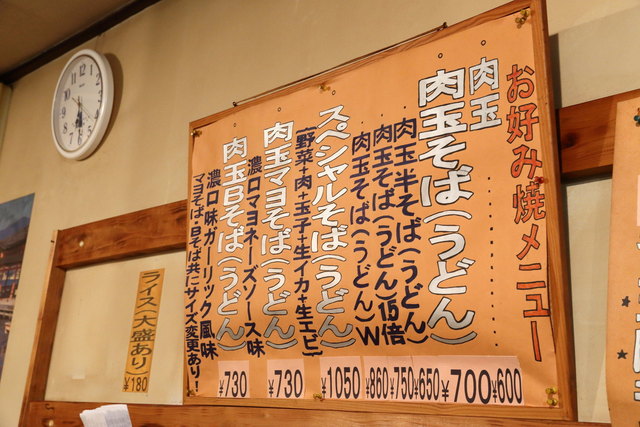 お好み焼メニュー
肉玉 ¥600
肉玉そば(うどん) ¥700
肉玉半そば(うどん) ¥650
肉玉そば(うどん)1.5倍 ¥750
肉玉そば(うどん)W ¥860
スペシャルそば(うどん) ¥1050
(野菜+肉+玉子+生イカ+生エビ)
肉玉マヨそば(うどん) ¥730
濃口マヨネーズソース味
肉玉Bそば(うどん) ¥730
濃口味ガーリック風味
マヨそば、Bそば共にサイズ変更あり!
ライス(大盛あり)
¥180